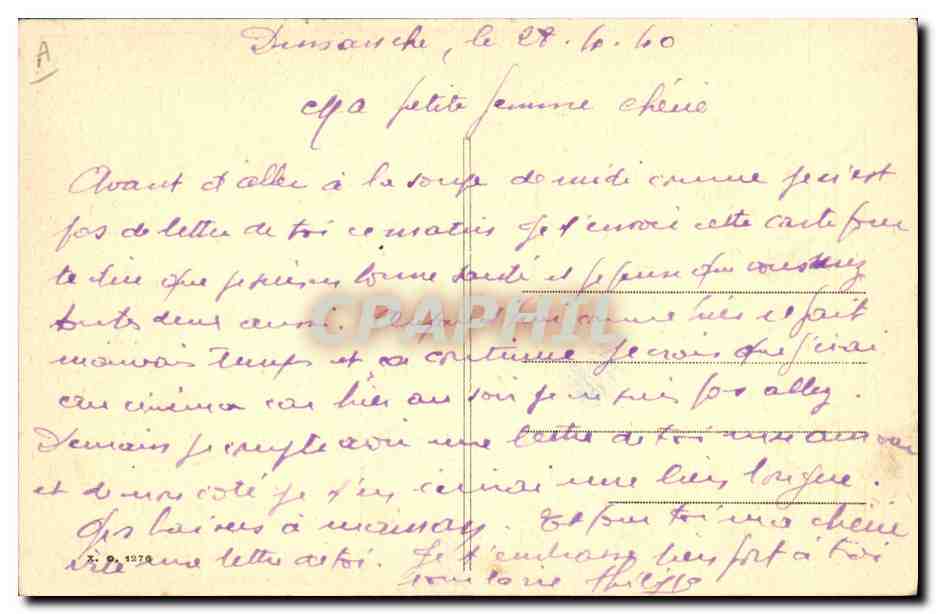 A
Dimanche, le 28.4.40
Ma petite femme chérie
Avant d'aller à la soupe de midi comme je n'est
pas de lettre de toi ce matin je t'envoie cette carte pour
te dire que je suis bonne santé et je pense que vous
toutes deux aussi. comme hier il fait
mauvais temps et ça continue je crois que j'irai
au cinéma car hier au soir je ne suis pas allez.
Demain je compte avoir une lettre de toi mon amour
et de mon côté je t'en écrirai une bien longue.
des baisers à maman. Et pour toi ma chérie
X. O. 1276
vite une lettre de toi. Je t'embrasse bien fort à toi
pour la vie
CPAPHIL